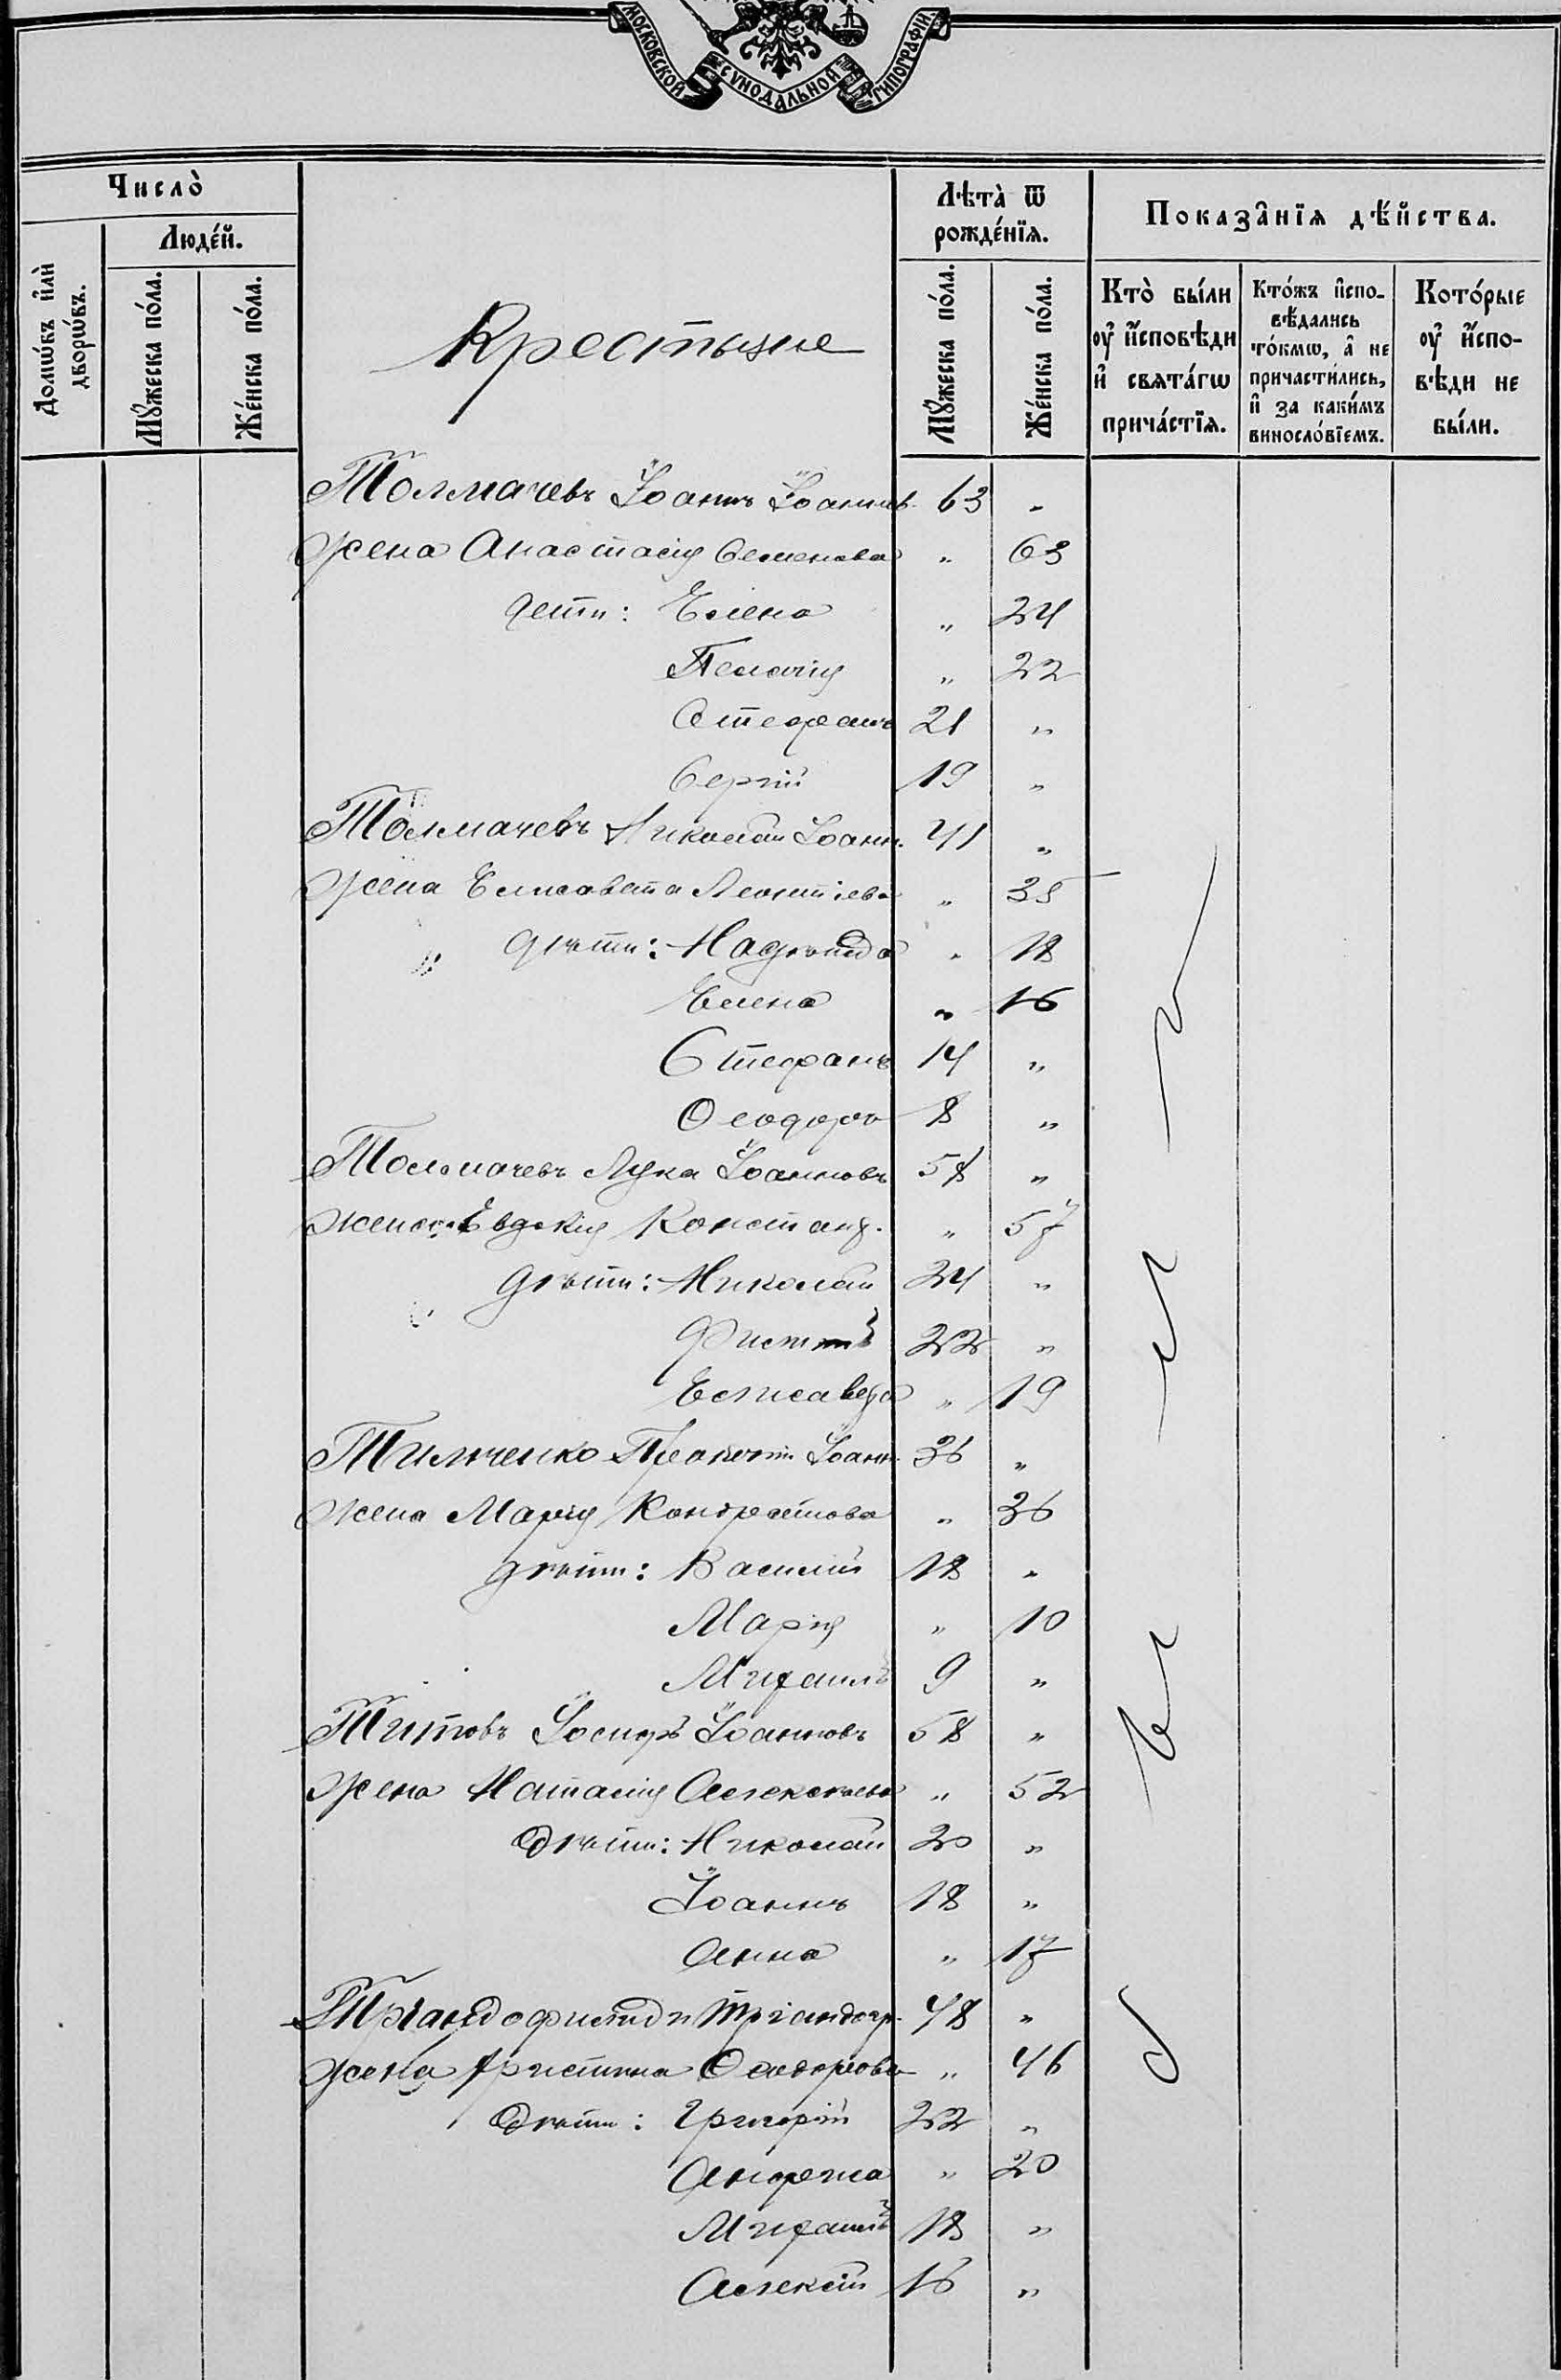 МОСКОВСКОЙ СѴНОДАЛЬНОЙ ТИПОГРАФІИ
Число̀
Людéй.
Домѡ́въ и҆лѝ дворѡ́въ.
Мꙋ́жеска пóла.
Жéнска пóла.
Крестьяне
Лѣтà ѿ рождéнїѧ.
Мꙋ́жеска пóла.
Жéнска пóла.
Показâнїѧ дѣ́йства.
Ктò бы́ли оу҆ и҆́сповѣди и҆ свѧтáгѡ причáстїѧ.
Ктóжъ и҆спо-
вѣ́дались
тóкмѡ, а҆ не
причасти́лись,
и҆ за каки́мъ
винослóвїемъ.
Котóрые
оу҆ и҆́спо-
вѣди не
бы́ли.
Толмачевъ Іоаннъ Іоаннов. 63 „
Жена Анастасія Семенова „ 63
дети: Елена „ 24
Пелагія „ 22
Стефанъ 21 „
Сергій 19 „
Толмачевъ Николай Іоанн. 41 „
Жена Елисавета Леонтіева „ 35
дѣти: Надежда „ 18
Елена „ 16
Стефанъ 14 „
Ѳеодоръ 8 „
Толмачевъ Лука Іоанновъ 58 „
жена Евдокія Констант. „ 57
дѣти: Николай 24 „
Филиппъ 22 „
Елисавета „ 19
Тимченко Прокопій Іоанн. 36 „
жена Марія Кондратова „ 36
дѣти: Василій 18 „
Марія „ 10
Михаилъ 9 „
Титовъ Іосифъ Іоанновъ 58 „
Жена Наталія Алексѣева „ 52
дѣти: Николай 20 „
Іоаннъ 18 „
Анна „ 17
Тріандофилиди Тріандоф. 48 „
Жена Христина Ѳеодорова „ 46
дѣти: Григорій 22 „
Анфиса „ 20
Михаилъ 18 „
Алексѣй 16 „